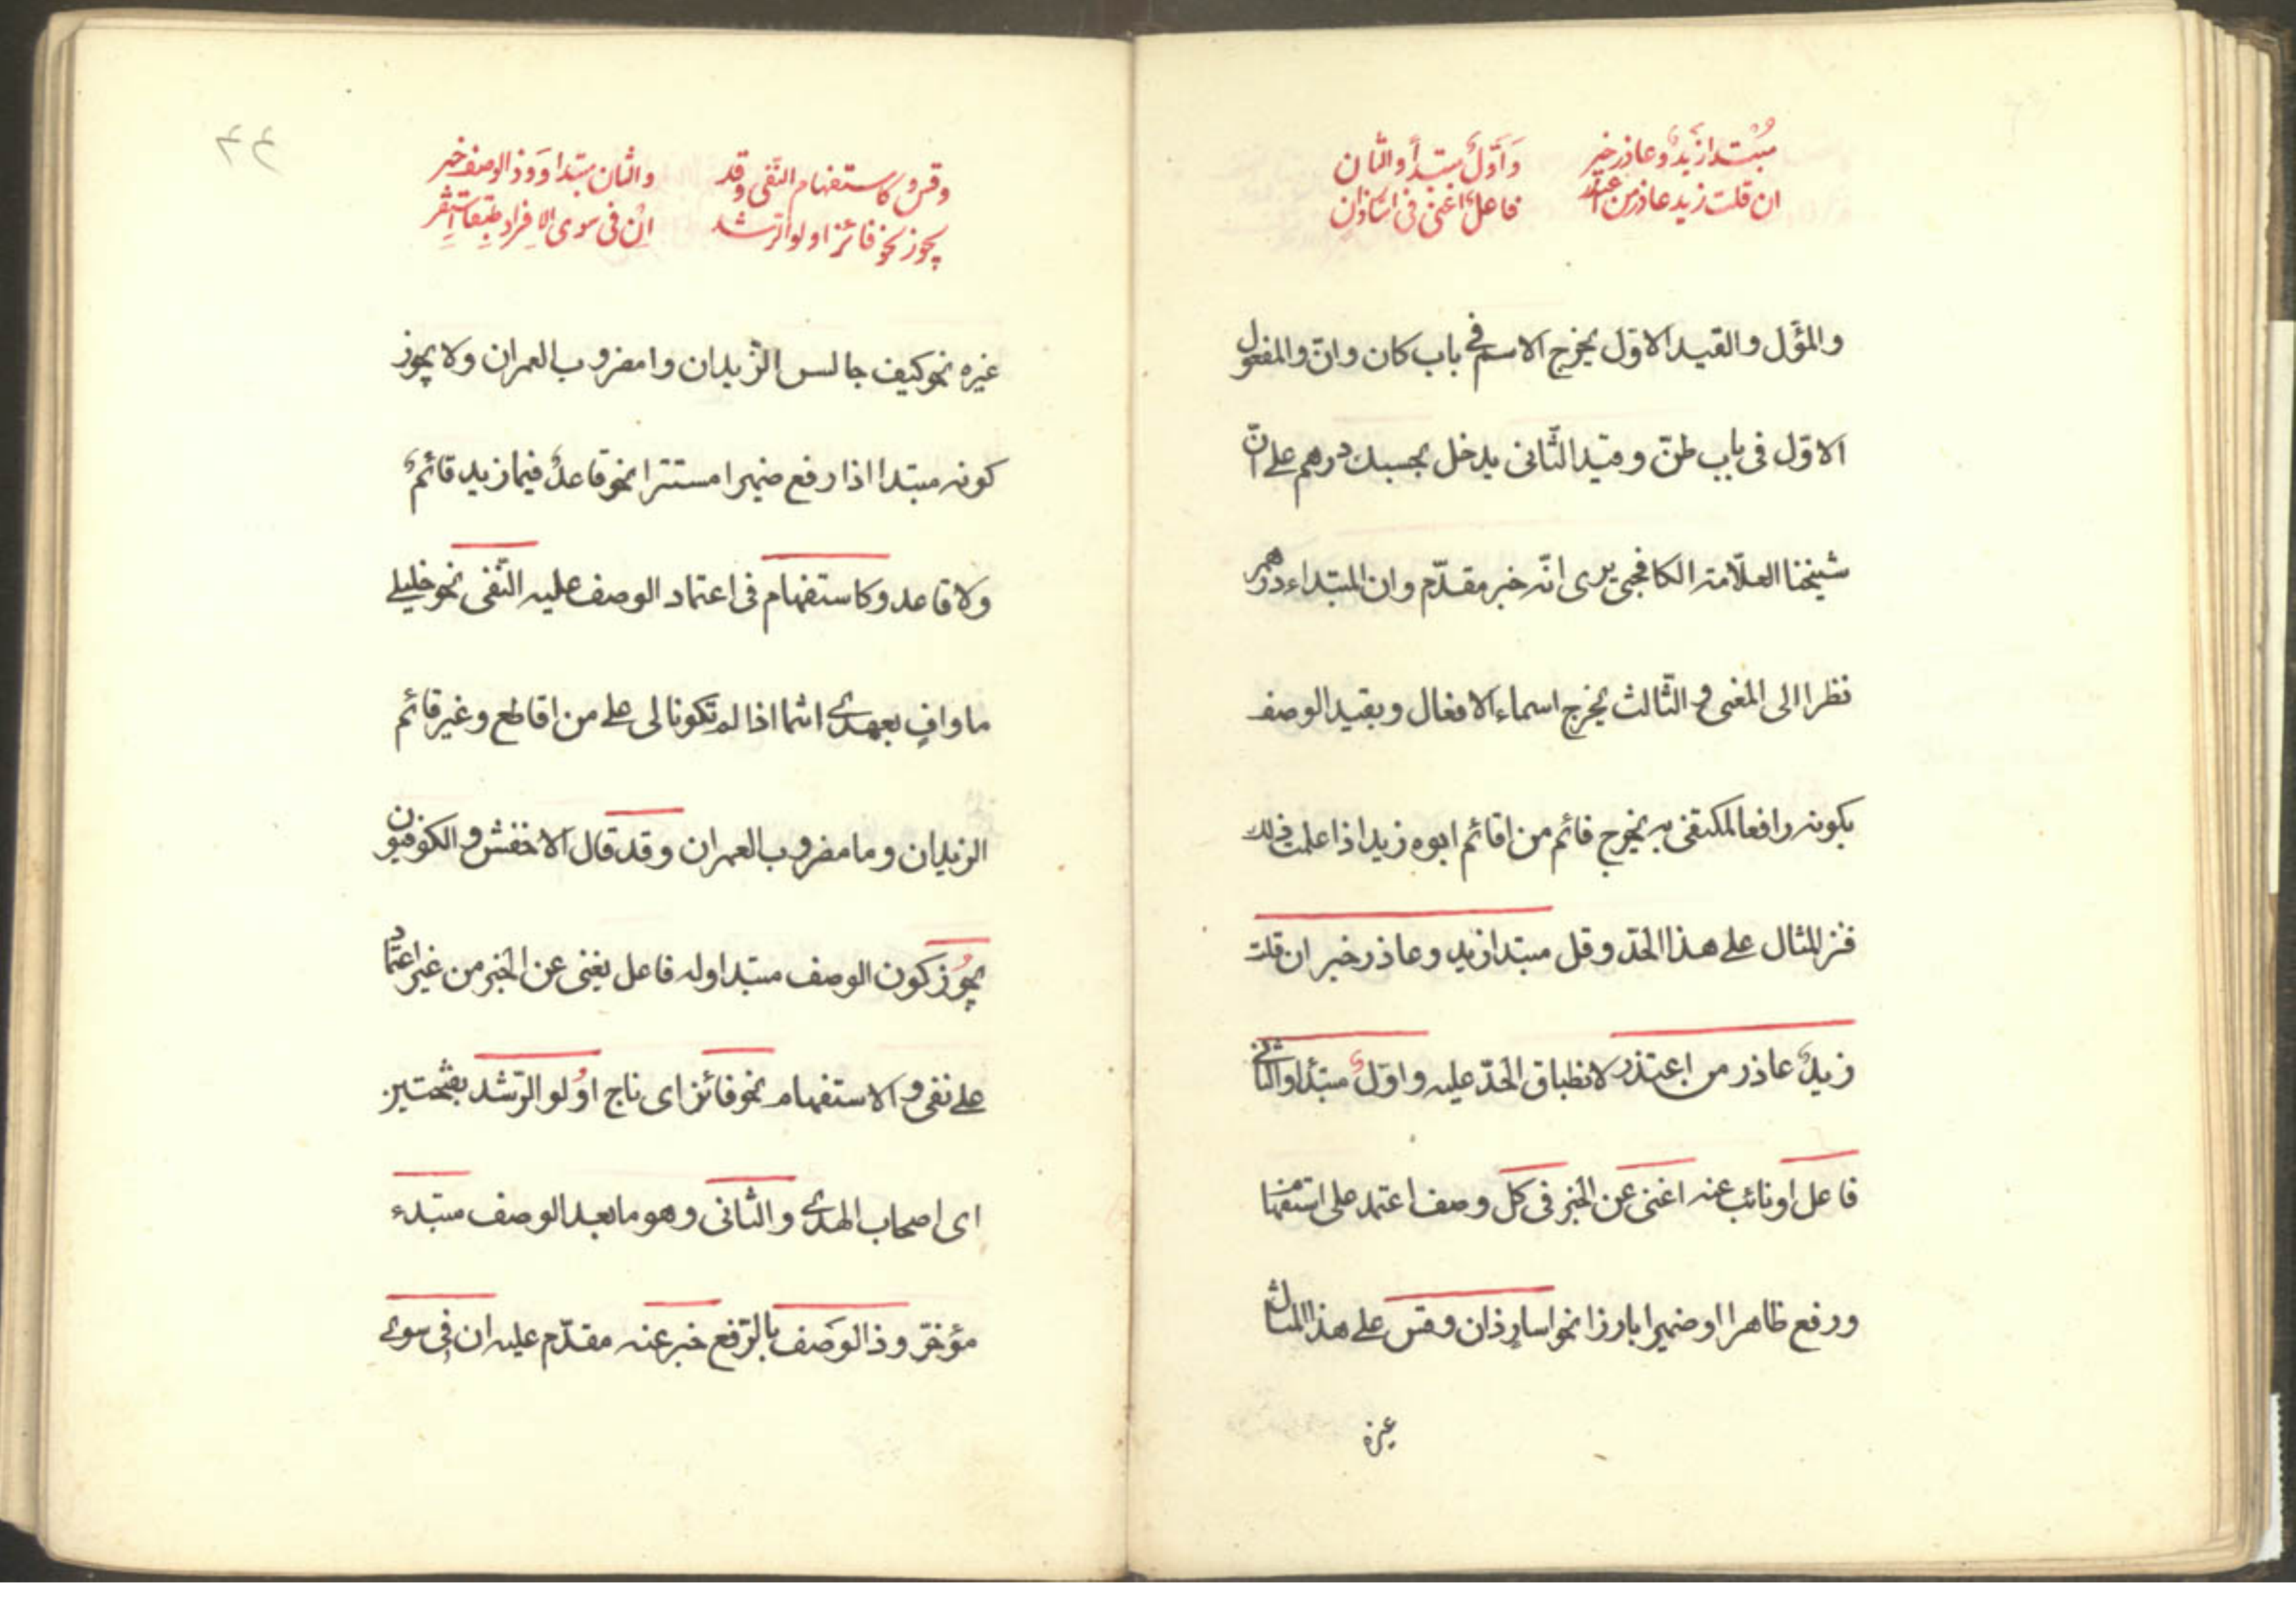 مُبْتدا زَيدٌ وعاذر خبر
ان قلت زيد عاذر من اعتذر
وَأوّلٌ مبتدأ والثان
فاعلٌ اغنى فى اسار ذان
والمؤّل والقيد الاوّل يخرج الاسم فى باب كان وانّ والمفعول
الاوّل فى باب ظنّ وقيد الثّانى يدخل بحسبك درهم على انّ
شيخنا العلّامة الكافجى يرى انّه خبر مقدّم وان المبتداء درهم
نظرا الى المعنى و الثّالث يخرج اسماء الافعال وبقيد الوصف
بكونه رافعا لمكتفى به يخرج قائم من اقائم ابوه زيد اذا علمت ذلك
فنزّ المثال على هذا الحدّ وقل مبتدا زيد وعاذر خبر ان قلت
زيدٌ عاذر من اعتذر لانطباق الحّد عليه واوّلٌ مبتدأ والثّانى
فاعل او نائب عنه اغنى عن الخبر فى كل وصف اعتمد على استفهام
ورفع ظاهرا او ضميرا بارزا نحو اسارٍ ذان وقس على هذا المثال
غيره
٤٤
وقس وكاستفهام النّفى وقد
يجوز نحو فائز اولو الرّشد
والثان مبتدا وَذ الوصف خبر
اِنْ فى سوى الاِفراد طبقا استقر
غيره نحو كيف جالس الزّيدان وامضروب العمران ولا يجوز
كونه مبتدا اذا رفع ضميرا مستترا نحو قاعدٌ فيما زيد قائمٌ
ولا قاعد وكاستفهام فى اعتماد الوصف عليه النّفى نحو خليلى
ما وافٍ بعهدى انتما اذا لم تكونا لى على من اقاطع وغير قائم
الزيدان وما مضروب العمران وقد قال الاخفش و الكوفيون
يجُوز كون الوصف مبتدا وله فاعل يغنى عن الخبر من غير اعتماد
على نفى و الاستفهام نحو فائز اى ناج اوُلو الرّشد بفتحتين
اى اصحاب الهدى والثّانى وهو ما بعد الوصف مبتدء
مؤخّر وذ الوصَف بالرّفع خبر عنه مقدّم عليه ان فى سوى